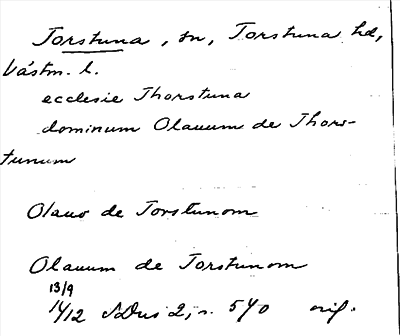 Torstuna, sn, Torstuna hd,
Västm. l.
ecclesie Thorstuna
dominum Olauum de Thors-
tunum
Olauo de Torstunom
Olauum de Torstunom
13/9
1412 SDns 2, s. 540 orig.